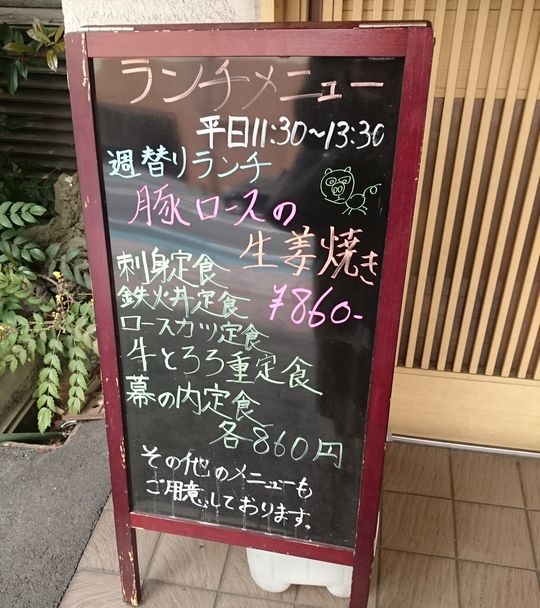 ランチメニュー
平日11:30~13:30
週替りランチ
豚ロースの
生姜焼き
¥860-
刺身定食
鉄火丼定食
ロースカツ定食
牛とろろ重定食
幕の内定食
各860円
その他のメニューも
ご用意しております。